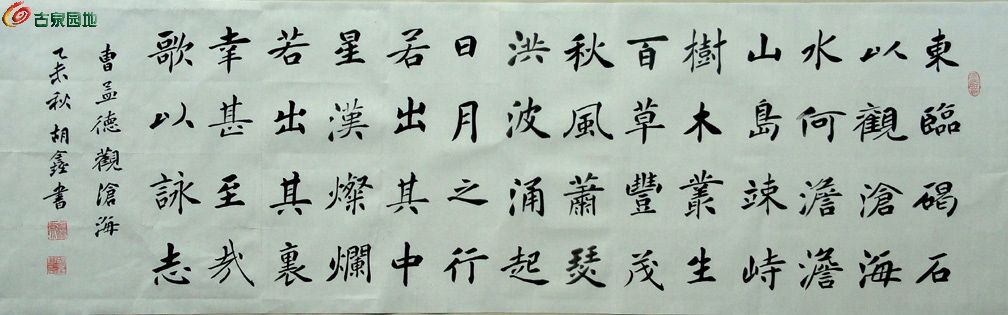 東臨碣石
以觀滄海
水何澹澹
山島竦峙
樹木叢生
百草豐茂
秋風蕭瑟
洪波涌起
日月之行
若出其中
星漢燦爛
若出其裏
幸甚至哉
歌以詠志
曹孟德觀滄海
乙未秋胡鑫書
古泉园地